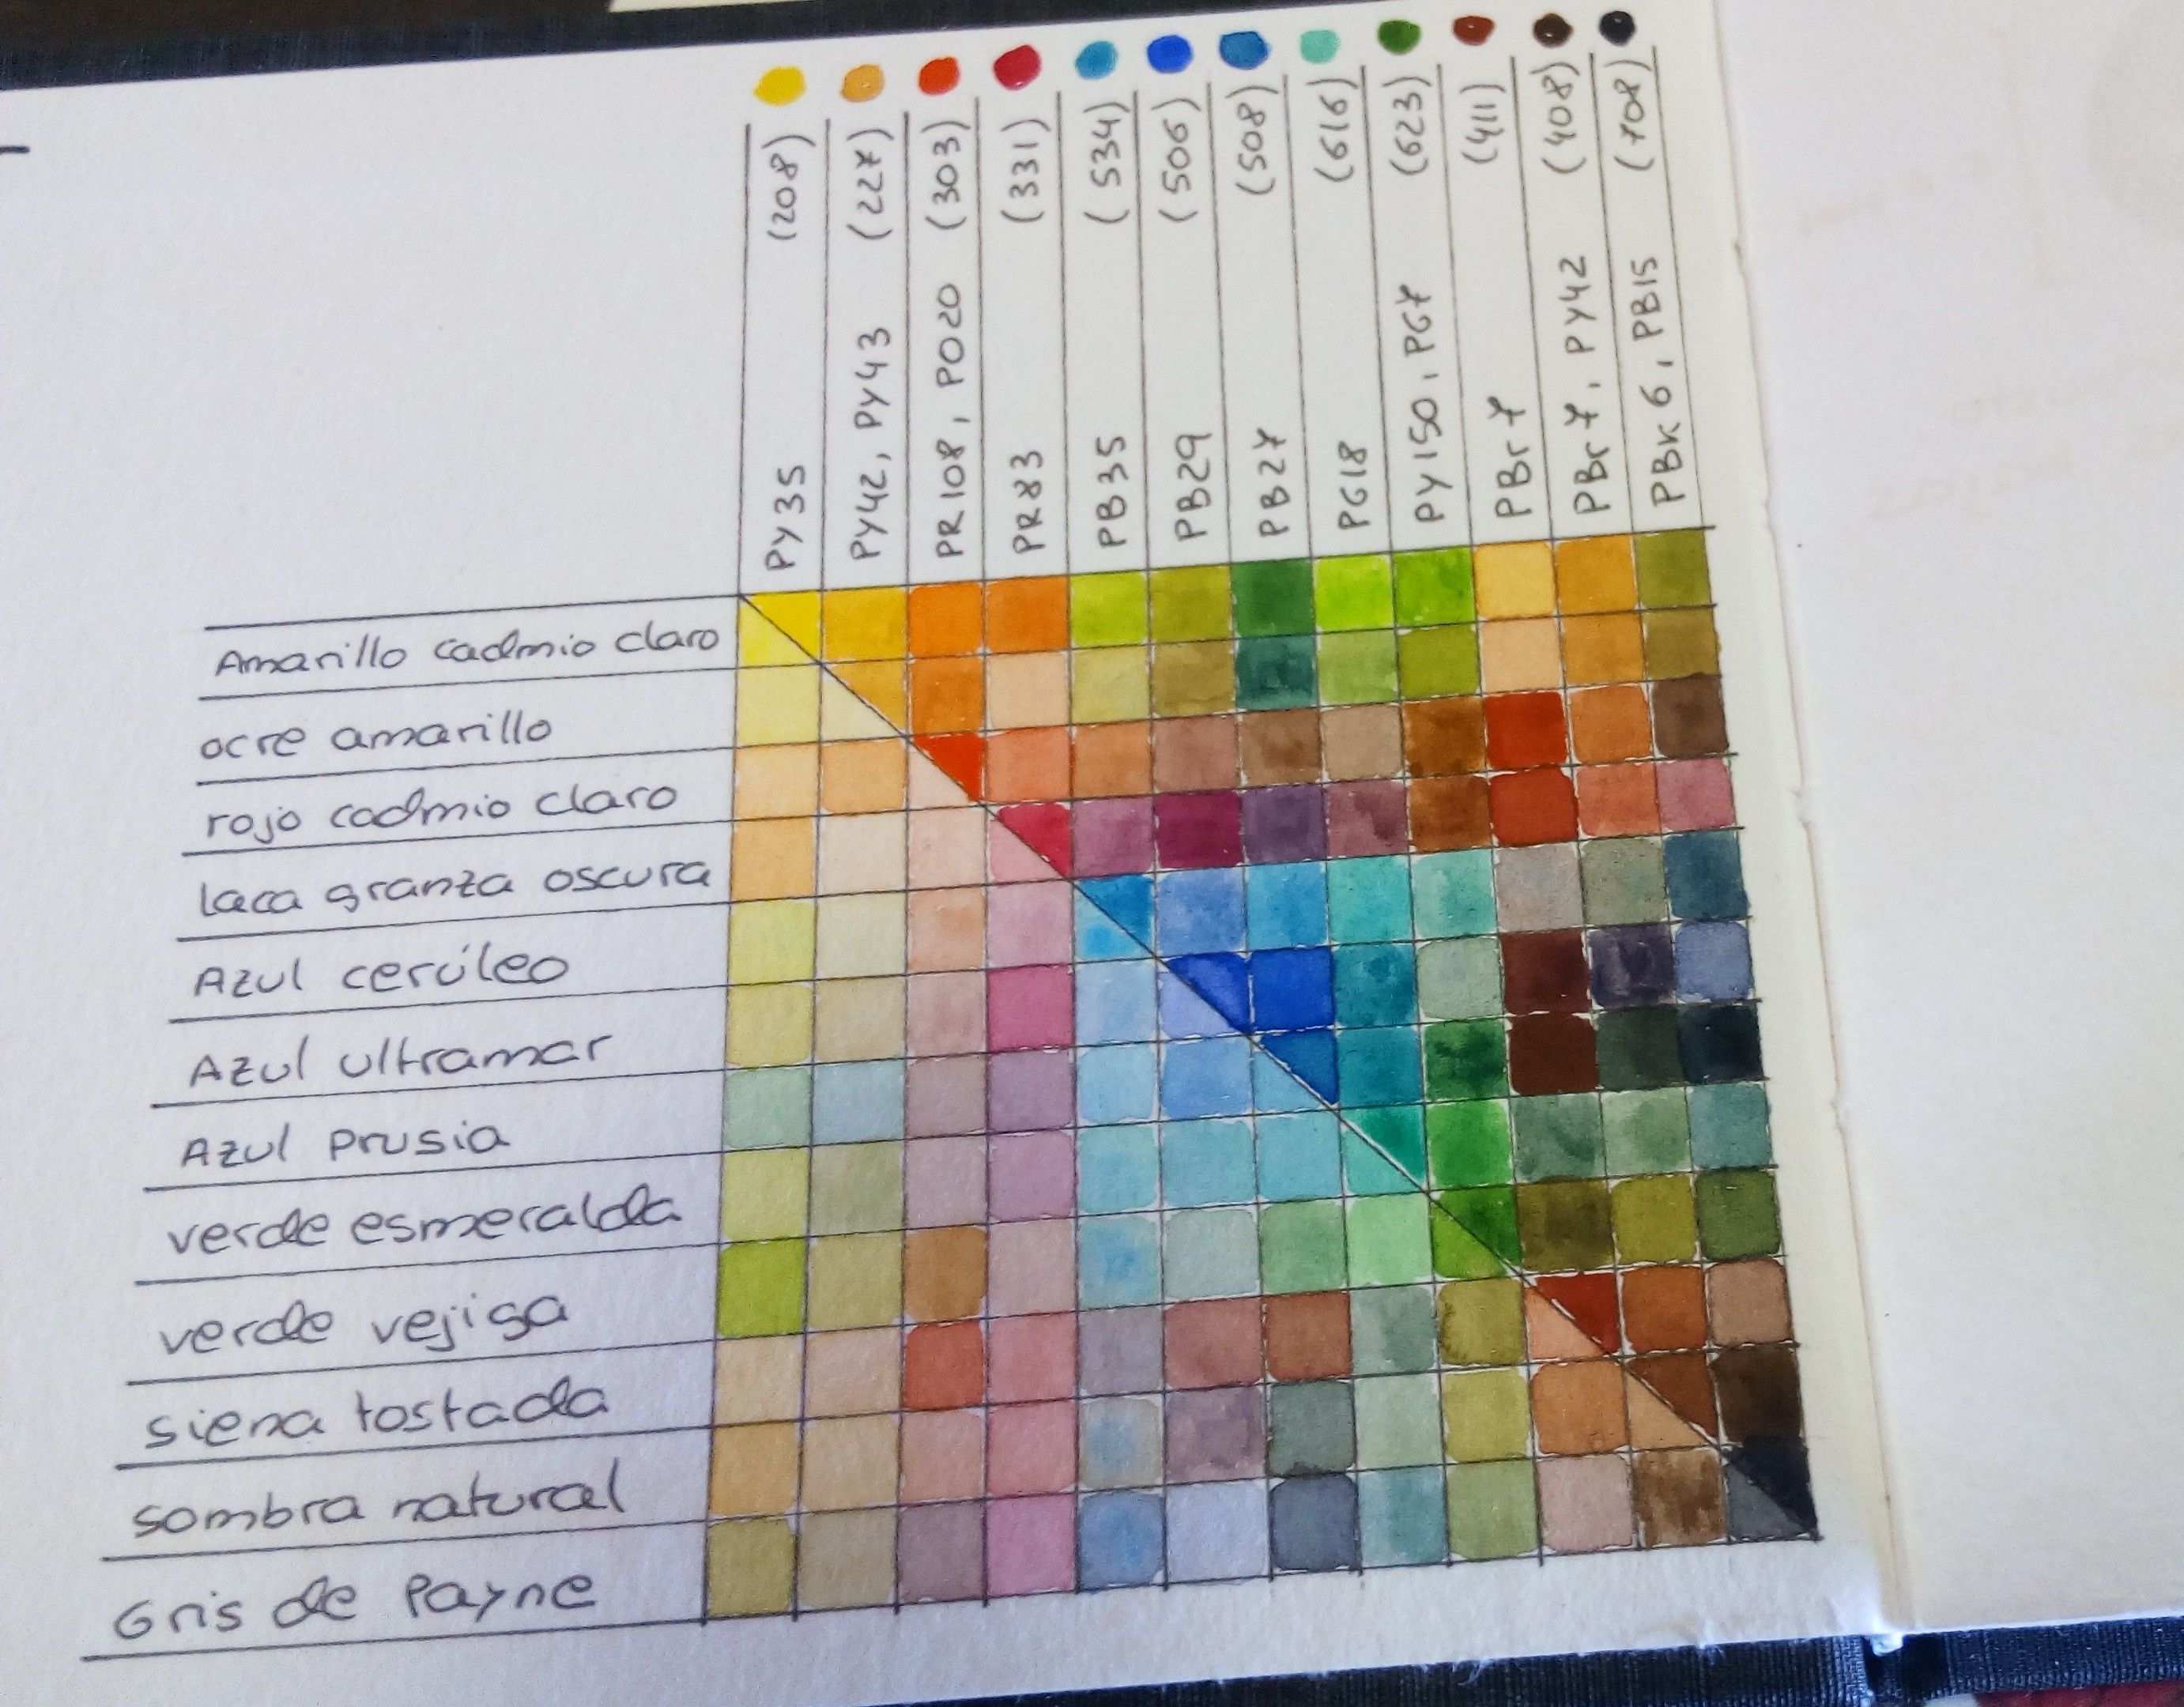 (208)
(227)
(303)
(331)
(534)
(506)
(508)
(616)
(623)
(411)
(408)
(708)
PY35
PY42, PY43
PR108, PO20
PR83
PB35
PB29
PB27
PG18
PY150, PG7
PBr7
PBr7, PY42
PBK6, PB15
Amarillo cadmio claro
ocre amarillo
rojo cadmio claro
laca granza oscura
Azul cerúleo
Azul ultramar
Azul prusia
verde esmeralda
verde vejiga
siena tostada
sombra natural
Gris de Payne